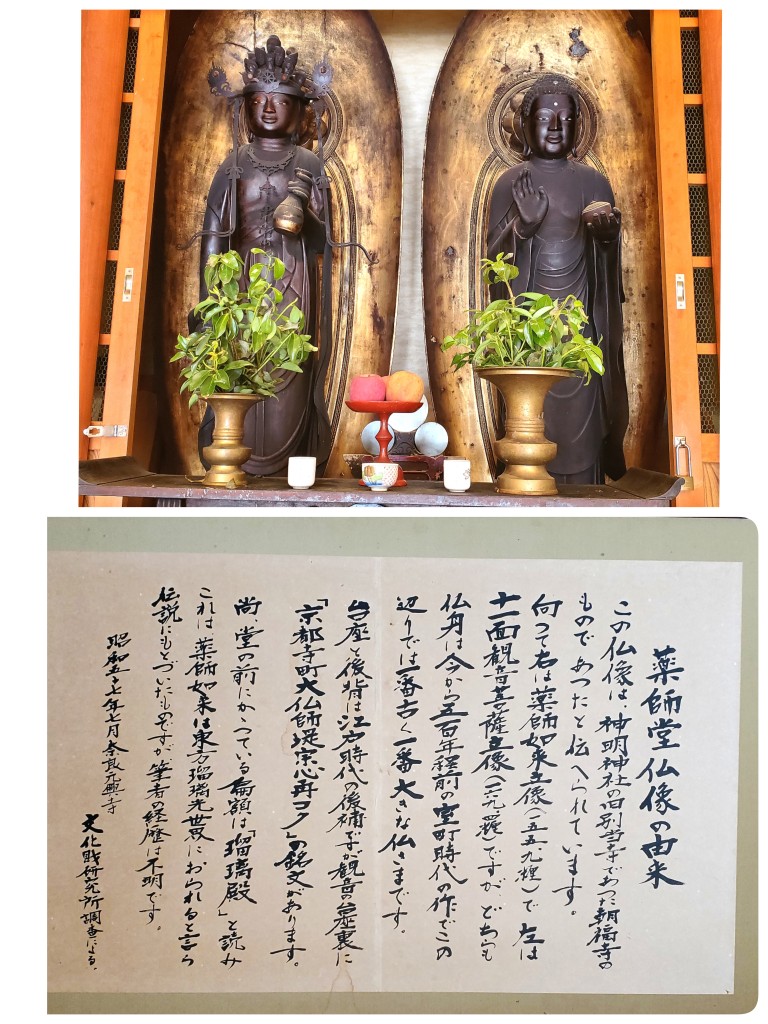 薬師堂仏像の由来
この仏像は、神明神社の旧別当寺であった朝福寺の
ものであつたと伝へられています。
向つて右は薬師如来立像(一五九糎)で 左は
十一面観音菩薩立像(一六九糎)ですが どちらも
仏身は今から五百年程前の室町時代の作でこの
辺りでは一番古く一番大きな仏さまです。
台座と後背は江戸時代の後補ですが観音の台座裏に
「京都寺町大仏師堤宗心再コク」の銘文があります。
尚、堂の前にかゝっている扁額は「瑠璃殿」と読み
これは 薬師如来は東方瑠璃光世界におられると言う
伝説にもとづいたものですが筆者の経歴は不明です。
昭和五十七年七月 奈良元興寺
文化財研究所調査による。